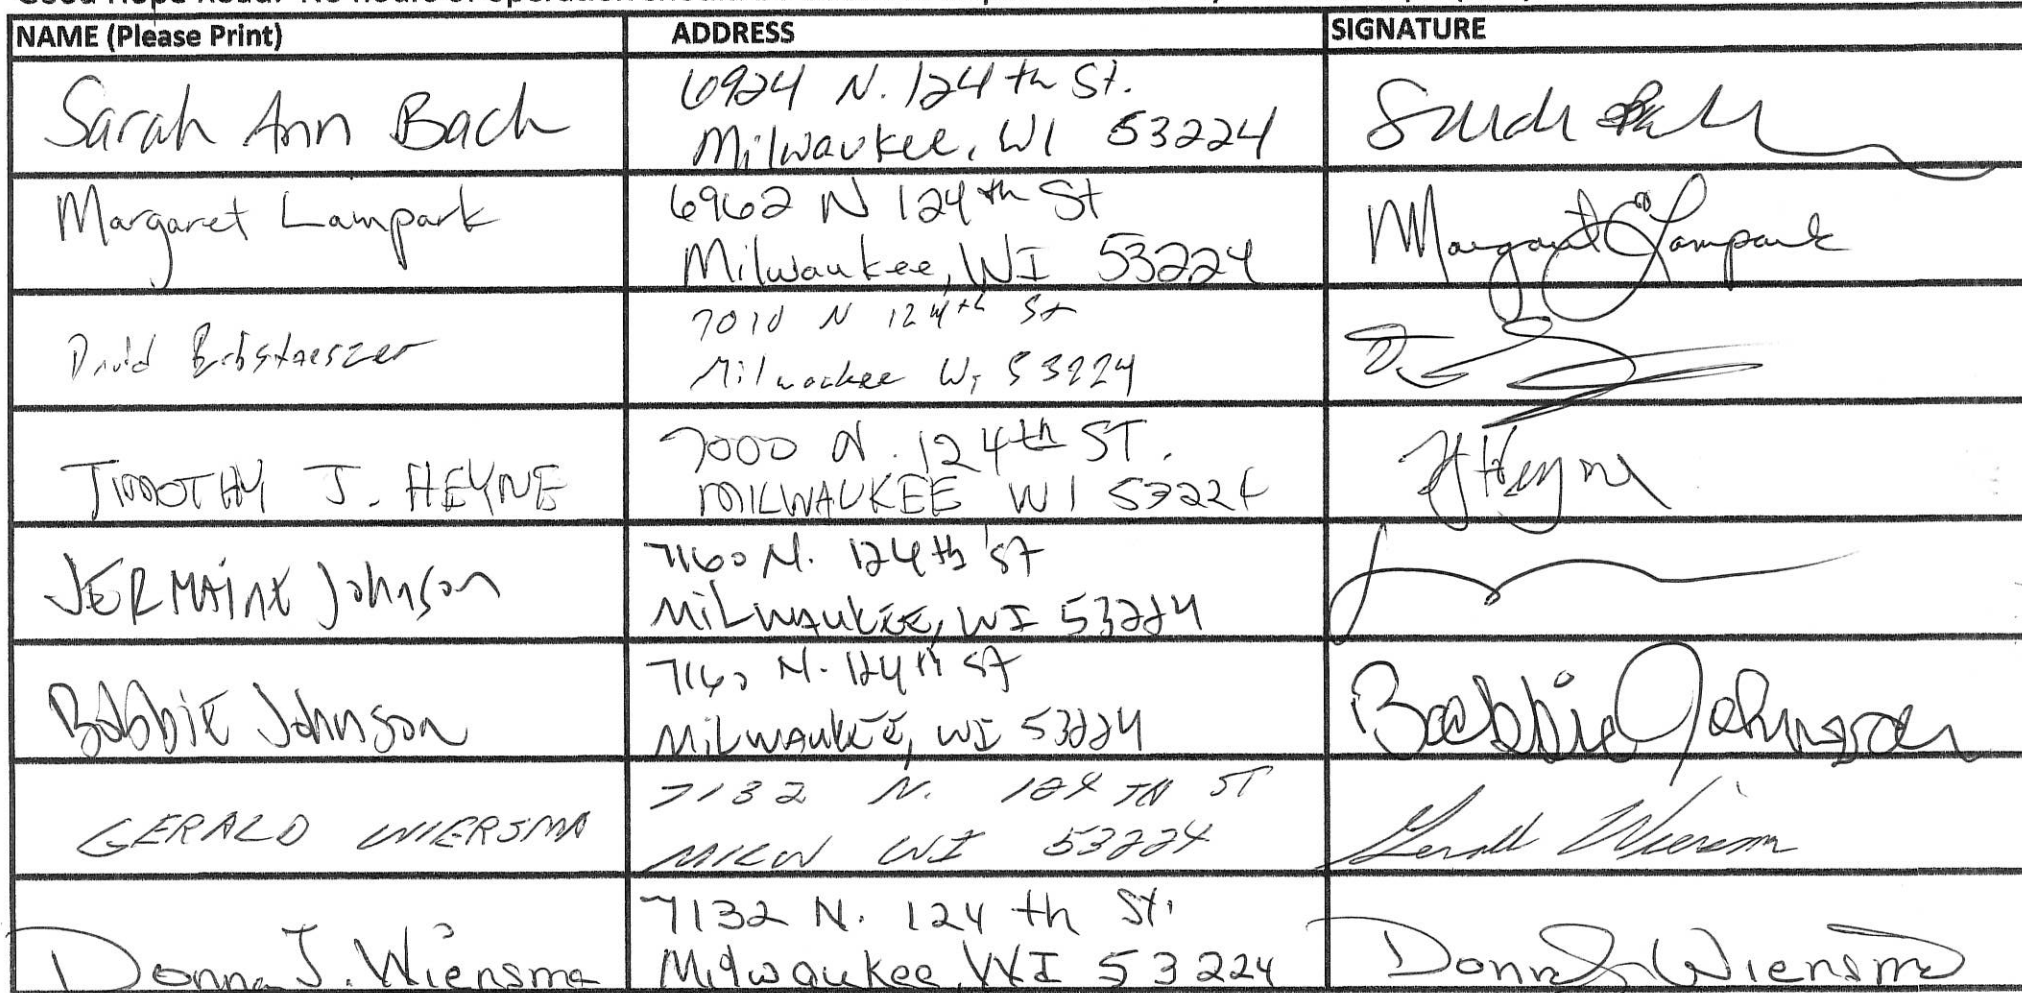 NAME (Please Print) ADDRESS SIGNATURE
Sarah Ann Bach
6924 N. 124th St.
Milwaukee, WI 53224
Margaret Lampark
6962 N 124th St
Milwaukee, WI 53224
Margaret Lampark
David
7010 N 124th St
Milwaukee WI 53224
TIMOTHY J. HEYNE
7000 N. 124th ST.
MILWAUKEE WI 53224
JERMAINE Johnson
7160 N. 124th St
MiLWAUKEE, WI 53224
BobbiE Johnson
7160 N. 124th St
MiLWAUKEE, WI 53224
Bobbie Johnson
GERALD WIERSMA
7132 N. 124 TH ST
MILW WI 53224
Gerald Wiersma
Donna J. Wiersma
7132 N. 124 th St.
Milwaukee, WI 53224
Donna J Wiersma